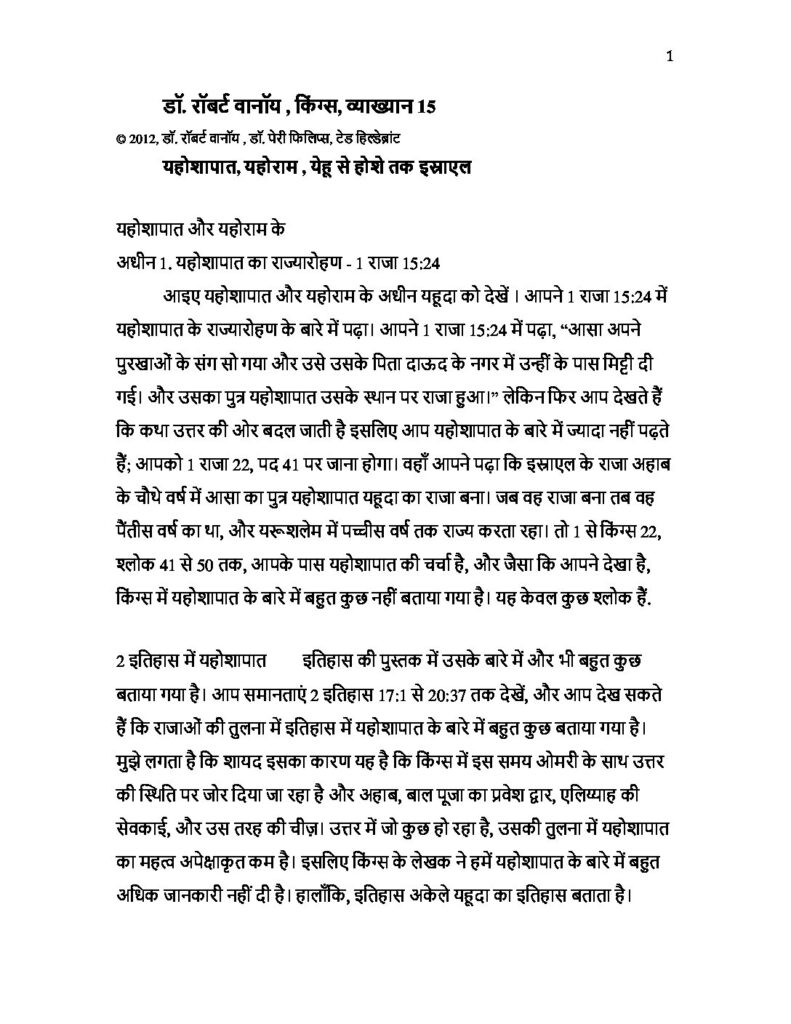 1
डॉ. रॉबर्ट वानॉय , किंग्स, व्याख्यान 15
© 2012, डॉ. रॉबर्ट वानॉय , डॉ. पेरी फिलिप्स, टेड हिल्डेब्रांट
यहोशापात, यहोराम , येहू से होशे तक इस्राएल
यहोशापात और यहोराम के
अधीन 1. यहोशापात का राज्यारोहण - 1 राजा 15:24
आइए यहोशापात और यहोराम के अधीन यहूदा को देखें । आपने 1 राजा 15:24 में
यहोशापात के राज्यारोहण के बारे में पढ़ा। आपने 1 राजा 15:24 में पढ़ा, “आसा अपने
पुरखाओं के संग सो गया और उसे उसके पिता दाऊद के नगर में उन्हीं के पास मिट्टी दी
गई। और उसका पुत्र यहोशापात उसके स्थान पर राजा हुआ।” लेकिन फिर आप देखते हैं
कि कथा उत्तर की ओर बदल जाती है इसलिए आप यहोशापात के बारे में ज्यादा नहीं पढ़ते
हैं; आपको 1 राजा 22, पद 41 पर जाना होगा। वहाँ आपने पढ़ा कि इस्राएल के राजा अहाब
के चौथे वर्ष में आसा का पुत्र यहोशापात यहूदा का राजा बना। जब वह राजा बना तब वह
पैंतीस वर्ष का था, और यरूशलेम में पच्चीस वर्ष तक राज्य करता रहा। तो 1 से किंग्स 22,
श्लोक 41 से 50 तक, आपके पास यहोशापात की चर्चा है, और जैसा कि आपने देखा है,
किंग्स में यहोशापात के बारे में बहुत कुछ नहीं बताया गया है। यह केवल कुछ श्लोक हैं.
2 इतिहास में यहोशापात इतिहास की पुस्तक में उसके बारे में और भी बहुत कुछ
बताया गया है। आप समानताएं 2 इतिहास 17:1 से 20:37 तक देखें, और आप देख सकते
हैं कि राजाओं की तुलना में इतिहास में यहोशापात के बारे में बहुत कुछ बताया गया है।
मुझे लगता है कि शायद इसका कारण यह है कि किंग्स में इस समय ओमरी के साथ उत्तर
की स्थिति पर जोर दिया जा रहा है और अहाब, बाल पूजा का प्रवेश द्वार, एलिय्याह की
सेवकाई, और उस तरह की चीज़। उत्तर में जो कुछ हो रहा है, उसकी तुलना में यहोशापात
का महत्व अपेक्षाकृत कम है। इसलिए किंग्स के लेखक ने हमें यहोशापात के बारे में बहुत
अधिक जानकारी नहीं दी है। हालाँकि, इतिहास अकेले यहूदा का इतिहास बताता है।